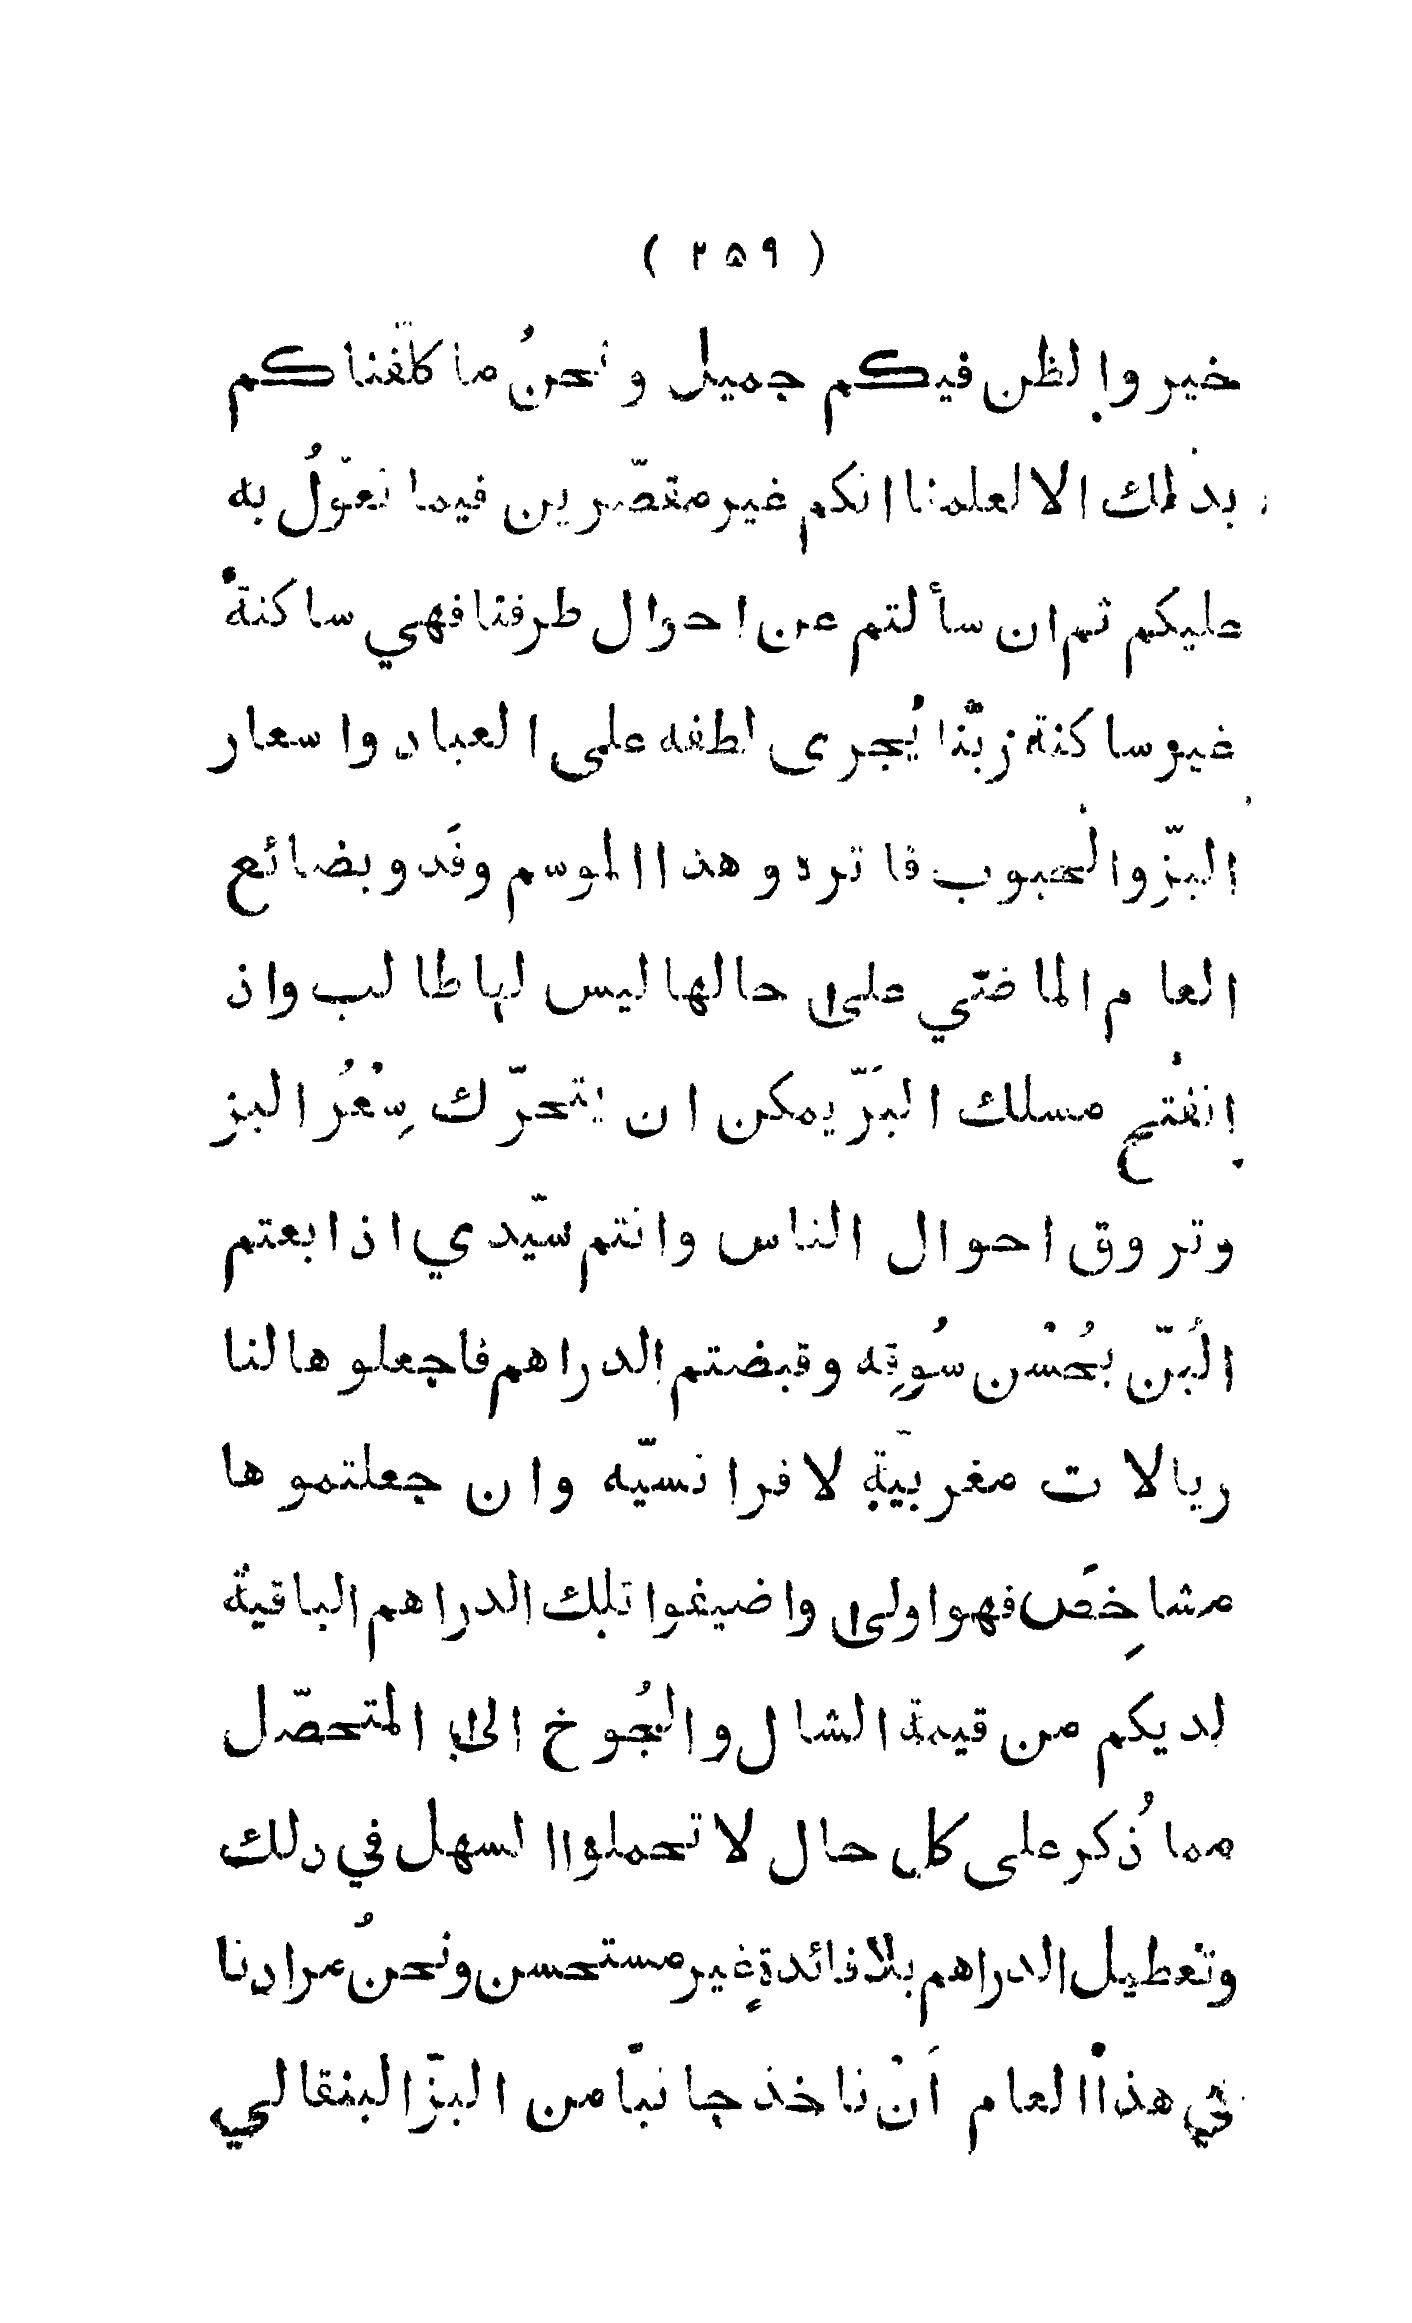 ( ٢٥٩ )
خير والظن فيكم جميل ونحنُ ما كلّفناكم
بذلك الا لعلمنا انكم غير مقصّرين فيما نعوّلُ به
عليكم ثم ان سألتم عن احوال طرفنا فهي ساكنةٌ
غيو ساكنة زبّنا يُجرى لطفه على العباد واسعار
البزّ والحبوب فاتره وهذا الموسم وفَد وبضائع
العام الماضي على حالها ليس لها طالب وان
إنفتح مسلك البَرّ يمكن ان يتحرّك سِعْرُ البز
وتروق احوال الناس وانتم سيّدي اذا بعتم
البُنّ بحُسْن سُوقِه وقبضتم الدراهم فاجعلوها لنا
ريالات مغربيّة لا فرانسيّه وان جعلتموها
مشاخِصَ فهو اولى واضيفوا تلك الدراهم الباقية
لديكم من قيمة الشال والجُوخ الى المتحصّل
مما ذُكر على كل حال لا تحملوا السهل في ذلك
وتعطيل الدراهم بلا فائدةٍ غير مستحسن ونحنُ مرادنا
في هذا العام أنْ ناخذ جانبًا من البزّ البنقالي